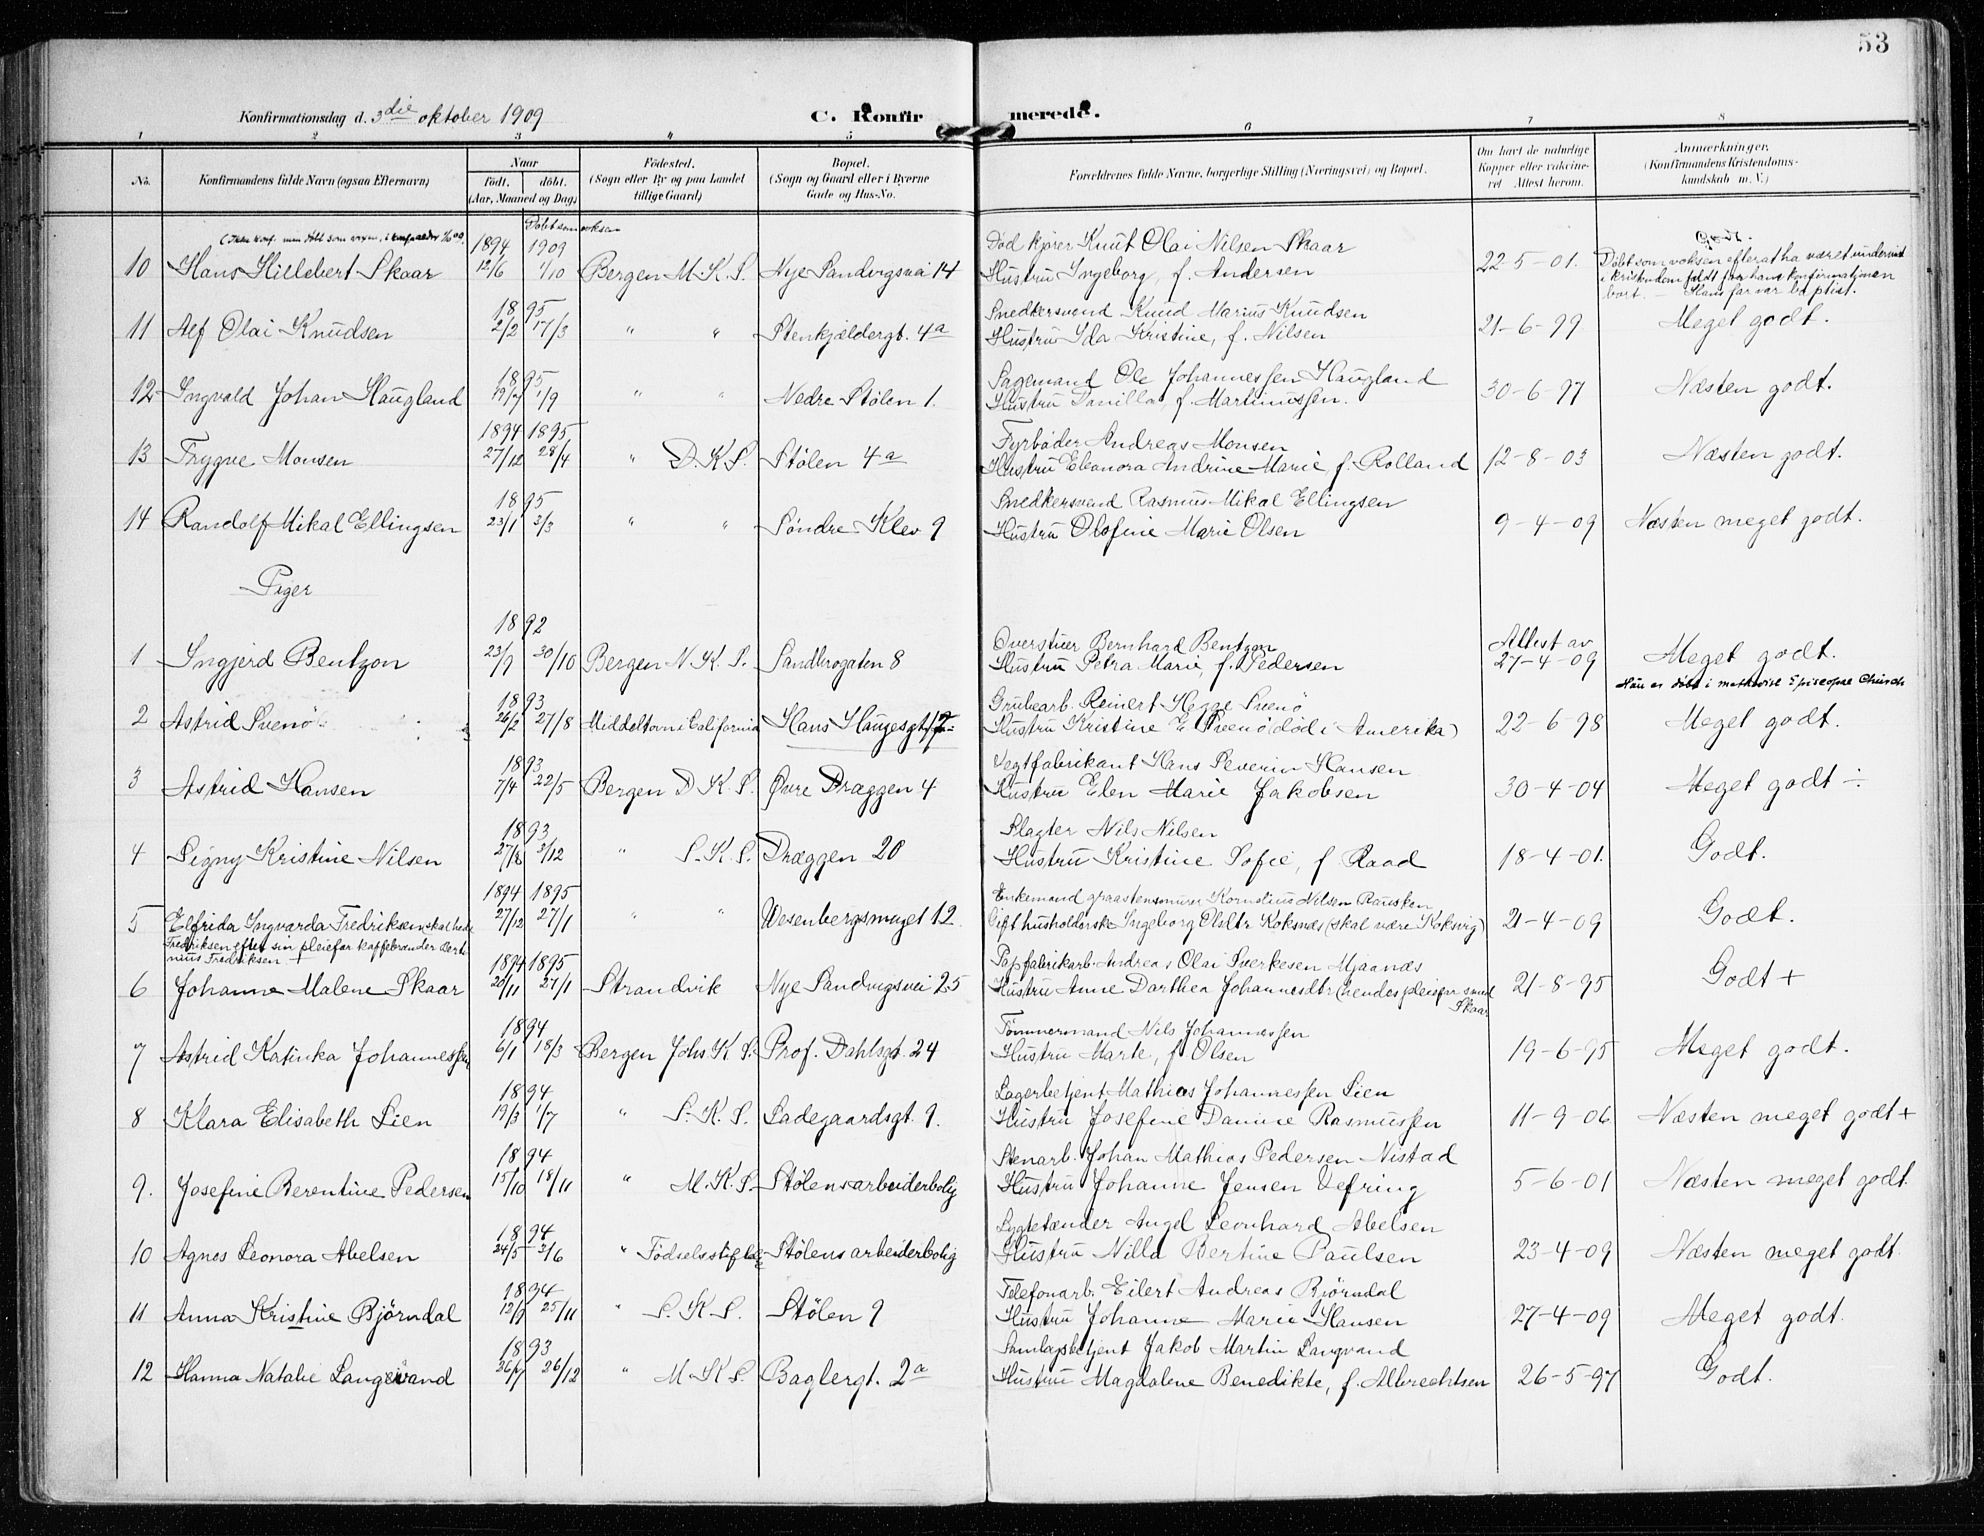 53
Konfirmationsdag d. 3die oktober 1909 C. Konfirmerede.
1 2 3 " 5 6 7 8
No. Konfirmandens fulde Navn (ogsaa Efternavn) Naar Fødested. Bopæl. Forældrenes fulde Navne, borgerlige Stilling (Næringsvei) og Bopæl. Om havt de naturlige Anmærkninger.
født. døbt. (Sogn eller By og paa Landet (Sogn og Gaard eller i Byerne Kopper eller vakcine- (Konfirmandens Kristendoms-
(Aar, Maaned og Dag) tillige Gaard) Gade og Hus-No. ret Attest herom. kundskab m. V.)
(Ikke konf. men døbt som voksen, i Døbt som voksen
1894 1909 Død kjører Knut Olai Nilsen Skaar Godt.
10 Hans Hillebert Skaar 12/6 1/10 Bergen M. K. S. Nye Sandvigsvei 14 Hustru Ingeborg, f. Andersen 22-5-01. Døbt som voksen efter at ha været undervist
i kristendom faldt for hans konfirmationen
bort. — Hans far var baptist.
1895 Snedkersvend Knud Marius Knudsen
11 Alf Olai Knudsen 2/2 17/3 " " Stenkjeldergt. 4a Hustru Ida Kristine, f. Nilsen 21-6-99 Meget godt.
1895 Sagemand Ole Johannessen Haugland
12 Ingvald Johan Haugland 1/9 " " Nedre Stølen 1. Hustru Danilla, f. Martinussen. 30-6-97 Næsten godt.
1894 1895 Fyrbøder Andreas Monsen
13 Trygve Monsen 27/12 28/4 " D. K. S. Stølen 4a Hustru Eleonora Andrine Marie f. Rolland 12-8-03 Næsten godt.
1895 Snedkersvend Rasmus Mikal Ellingsen
14 Randolf Mikal Ellingsen 23/1 3/3 " " Søndre Klev 9 Hustru Olofine Marie Olsen 9-4-09 Næsten meget godt.
Piger
1892 Overstuer Bernhard Bentzon Attest av
1 Ingjerd Bentzon 23/9 30/10 Bergen N. K. S. Sandbrogaten 8 Hustru Petra Marie, f. Pedersen 27-4-09 Meget godt.
Hun er døbt i methodist Episcopae Church
1893 Grubearb. Reinert Hegge Svenø
2 Astrid Svenø 26/2 27/8 Middeltown i California Hans Haugesgt. Hustru Kristine E. Svenø (død i Amerika) 22-6-98 Meget godt.
1893 Vegtfabrikant Hans Severin Hansen
3 Astrid Hansen 7/4 22/5 Bergen D. K. S. Øvre Dræggen 4 Hustru Elen Marie Jakobsen 30-4-04 Meget godt ÷
1893 Slagter Nils Nilsen
4 Signy Kristine Nilsen 27/8 3/12 " S. K. S. Dræggen 20 Hustru Kristine Sofie, f. Raad 18-4-01. Godt.
1894 1895 Enkemand graastensmurer Kornelius Nilsen Rausken
5 Elfrida Ingvarda Fredriksen skal hede 27/12 27/1 " " Wesenbergsmuget 12 Gift husholderske Ingeborg Olsdtr Koksnes (skal være Koksvig) 21-4-09 Godt.
Fredriksen efter sin pleiefar kaffebrænder
Fredriksen +
1894 1895 Papfabrikarb. Andreas Olai Sverkesen Mjaanes
6 Johanne Malene Skaar 20/11 27/1 Strandvik Nye Sandvigsvei 25 Hustru Anne Dorthea Johannesdtr (hendes pleiefar smed 21-8-95 Godt +
Skaar
1894 Tømmermand Nils Johannessen
7 Astrid Katinka Johannessen 6/1 18/3 Bergen Johs K S. Prof. Dahlsgt. 24 Hustru Marte, f. Olsen 19-6-95 Meget godt.
1894 Lagerbetjent Mathias Johannessen Lien
8 Klara Elisabeth Lien 19/3 1/7 " S. K. S. Ladegaardsgt. 9. Hustru Josefine Danine Rasmussen 11-9-06 Næsten meget godt +
1894 Stenarb. Johan Mathias Pedersen Nistad
9. Josefine Berentine Pedersen 15/10 18/11 " M. K. S. Stølens arbeiderbolig Hustru Johanne Jensen Defring 5-6-01 Næsten meget godt.
1894 Lygtetænder Angel Leonhard Abelsen
10 Agnes Leonora Abelsen 24/5 3/6 " Fødselsstiftelse Stølens arbeiderbolig Hustru Nilla Bertine Paulsen 23-4-09 Næsten meget godt.
1894 Telefonarb. Eilert Andreas Bjørndal
11 Anna Kristine Bjørndal 12/9 25/11 " S. K. S. Stølen 9 Hustru Johanne Marie Hansen 27-4-09 Meget godt.
1893 Samlagsbetjent Jakob Martin Langvand
12 Hanna Natalie Langevand 26/7 26/12 " M. K. S. Baglergt. 2a Hustru Magdalene Benedikte, f. Albrechtsen 26-5-97 Godt.